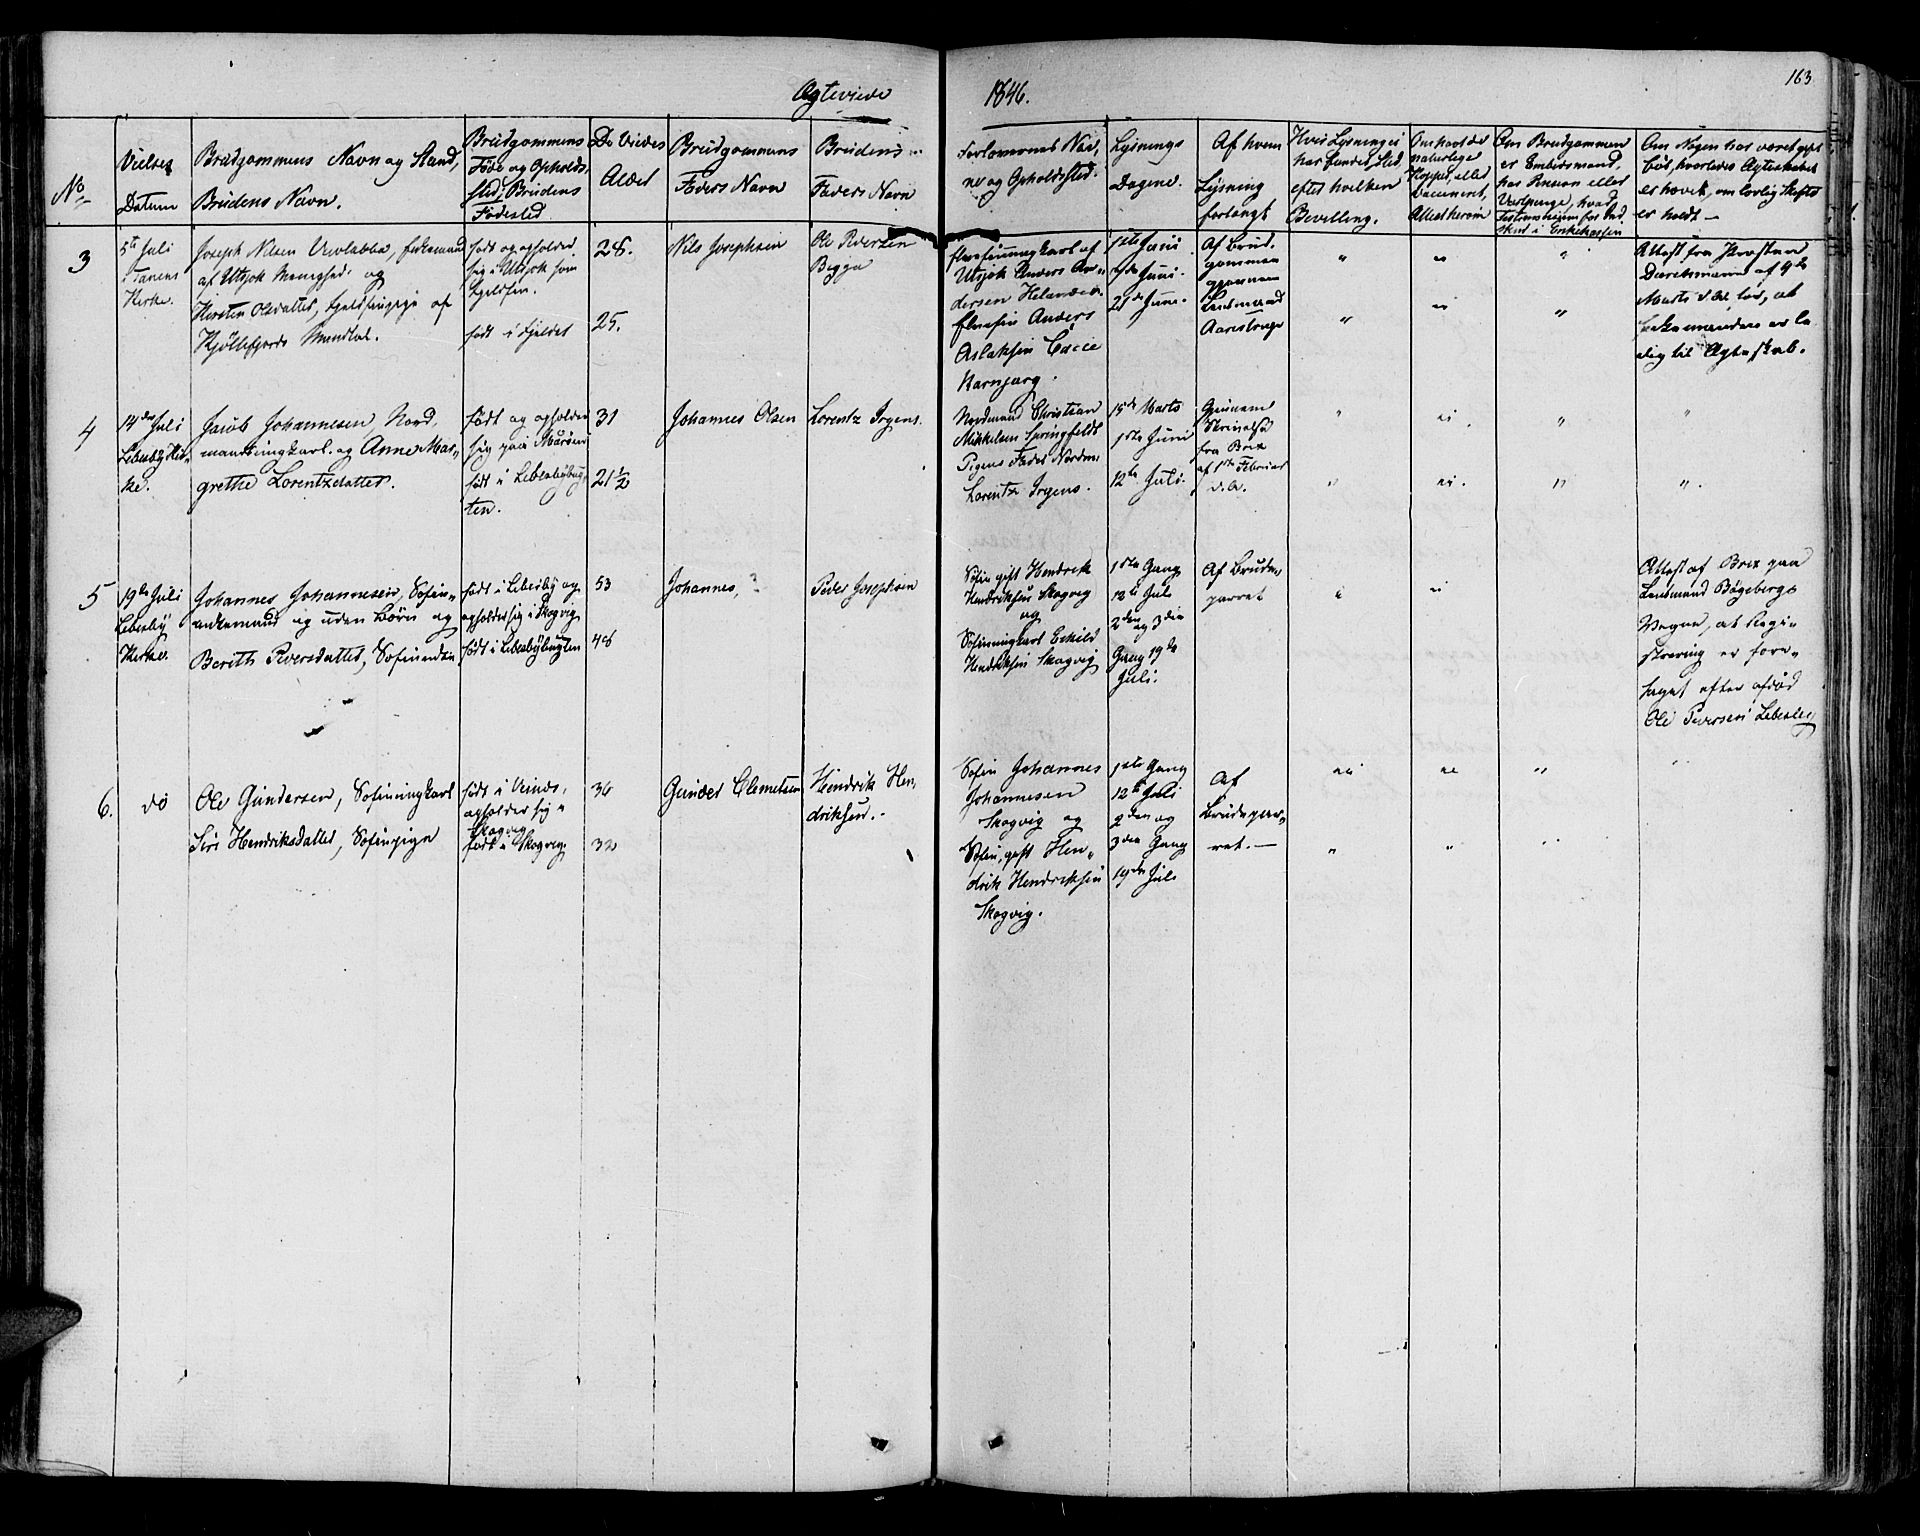 Ægteviede
1846.
163
No
Vielses
Datum
Brudgommens Navn og Stand,
Brudens Navn.
Brudgommens
Føde og Opholds,
sted, Brudens
Fødested
De Viedes
Alder
Brudgommens
Faders Navn
Brudens
Faders Navn
Forlovernes Nav,
ne og Opholdssted.
Lysnings
Dagene.
Af hvem
Lysning
forlangt
Hvis Lysning ei
har fundet Sted,
efter hvilken
Bevilling.
Om havt de
naturlige
Kopper, eller
Document,
Attest herom
Om Brudgommen
er Embedsmand,
har Pension eller
i Enkekassen
Om Nogen har været gift
før, hvorledes Ægteskabet
er hævet, om lovlig Skifte
er holdt -
3
5te Juli
i Tanens
Kirke.
Joseph Nilsen, Enkemand
af Utsjok Menighed og
Kirsten Olsdatter, Fjeldfinpige af
Kjøllefjords
født og opholder
sig i Utsjok som
Fjeldfin.
født i Fjeldet
28.
25.
Nils Josephsen
Ole Iversen
Bigga
Elvefinungkarl af
Utsjok Anders An-
dersen Helander
Elvefin Anders
Aslaksen
Karnjarg.
1ste Juni
7de Juni
21de Juni.
Af Brud,
gommen
gjennem
Lensmand
" " "
" " "
Attest fra Provsten
af 9de
Marts d.A. for, at
Enkemanden er le
dig til Ægteskab.
4
14de Juli
Lebesby Kir-
ke.
Jacob Johannesen, Nord,
mandsungkarl og Anne Mar-
grethe Lorentzdatter.
født og opholder
sig paa
født i Lebesbybug
ten.
31
21½
Johannes Olsen
Lorentz Irgens.
Nordmand Christian
Mikkelsen Springfeldt
Pigens Fader Nordm.
Lorentz Irgens.
15de Marts
1ste Juni
12te Juli.
Gjennem
Skrivelse
fra Brex
af 1ste Februar
d.A.
" " " "
" " " "
5
19de Juli
Lebesby
Kirke.
Johannes Johannesen, Søfin-
enkemand og uden Børn og
Berith Peersdatter, Søfinenke
født i Lebesby og
opholder sig i Skogvig
født i Lebesbybugten
53
48
Johannes, ?
Peder Josephsen
Søfin gift Hendrik
Hendriksen Skogvig
og
Søfinungkarl Eskild
Hendriksen Skogvig
1ste Gang
12te Juli
2den og 3die
Gang 19de
Juli.
Af Brude-
parret
" "
Attest af Brex paa
Lensmand Bøgebergs
Vegne, at Regi-
strering er fore-
taget efter afdød
Ole Peersen Lebesby
6.
do
Ole Gundersen, Søfinungkarl
Siri Hendriksdatter, Søfinpige
født i Veines,
opholder sig i
Skogvig
født i Skogvig
36
32
Gunder Clemetsen
Hendrik Hen,
driksen.
Søfin Johannes
Johannesen
Skogvig og
Søfin, gift Hen-
drik Hendriksen
Skogvig.
1ste Gang
12te Juli
2den og
3die Gang
19de Juli
Af
Brudepar-
ret. -
" " " "
" " "